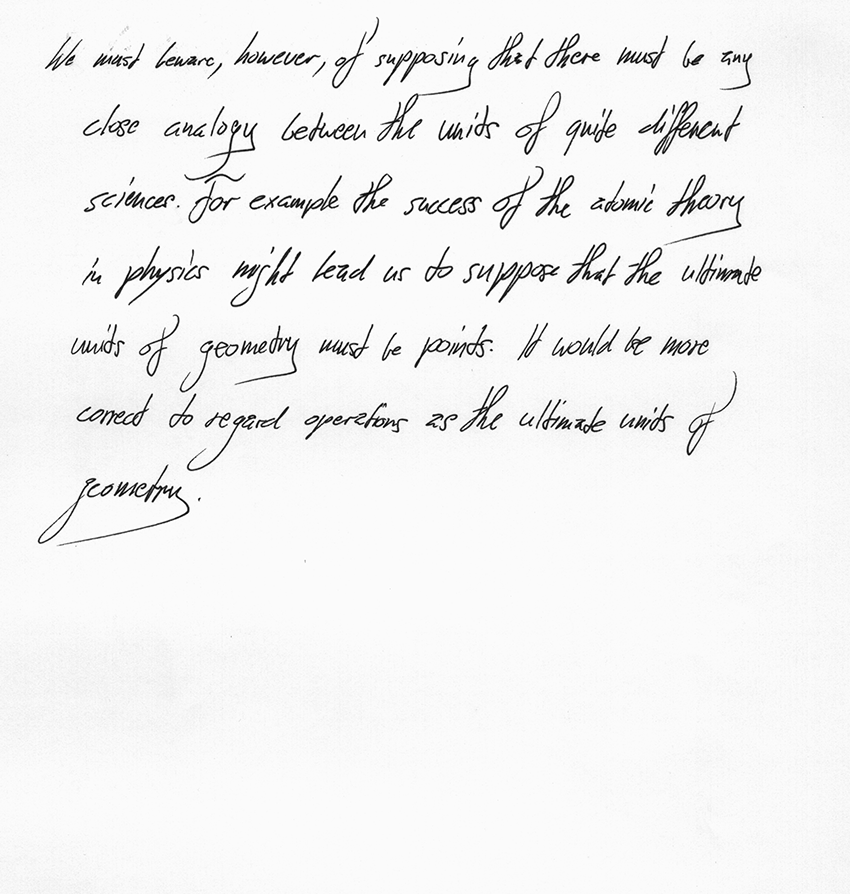 We must beware, however, of supposing that there must be any
close analogy between the units of quite different
sciences. For example the success of the atomic theory
in physics might lead us to suppose that the ultimate
units of geometry must be points. It would be more
correct to regard operations as the ultimate units of
geometry.